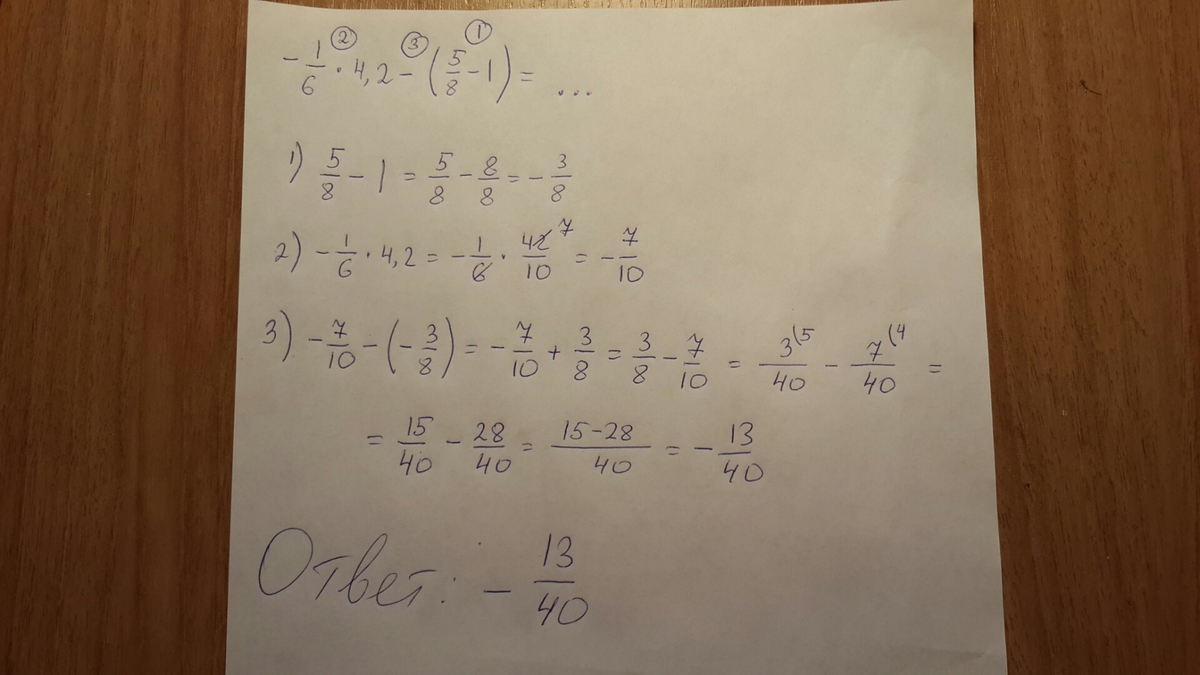 ② ③ ①
-1/6 · 4,2 - (5/8 - 1) = ...
1) 5/8 - 1 = 5/8 - 8/8 = -3/8
2) -1/6 · 4,2 = -1/6 · 42/10 7 = -7/10
3) -7/10 - (-3/8) = -7/10 + 3/8 = 3/8 - 7/10 = 3(5/40 - 7(4/40 =
= 15/40 - 28/40 = 15-28/40 = -13/40
Ответ: -13/40